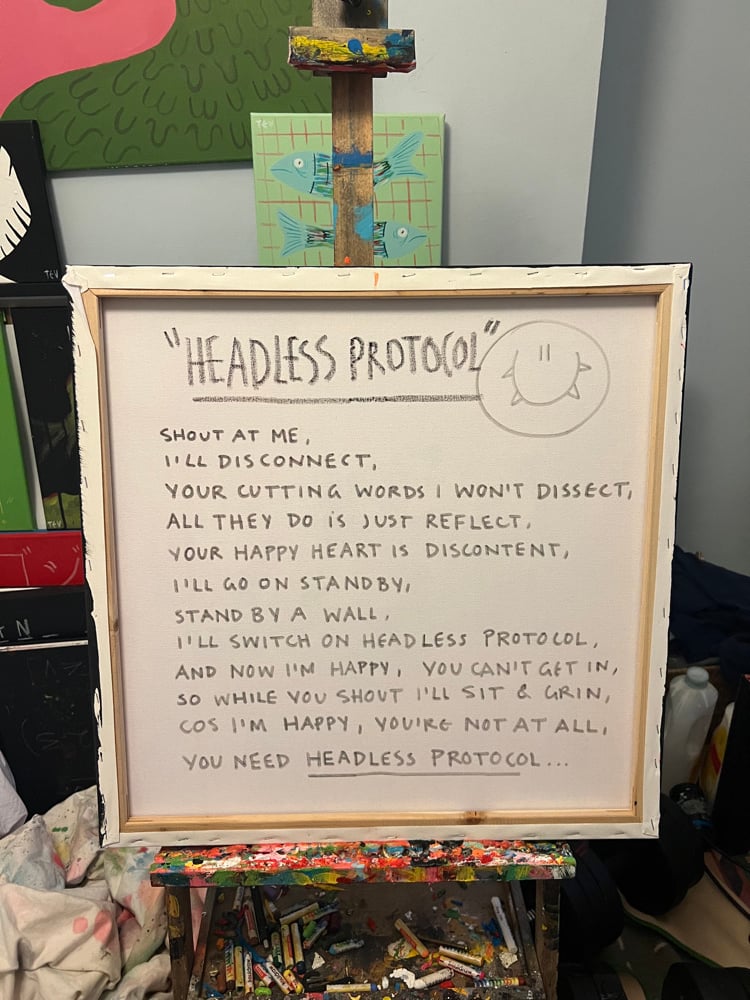 TEV
TEV
"HEADLESS PROTOCOL"
SHOUT AT ME,
I'LL DISCONNECT,
YOUR CUTTING WORDS I WON'T DISSECT,
ALL THEY DO IS JUST REFLECT,
YOUR HAPPY HEART IS DISCONTENT,
I'LL GO ON STANDBY,
STAND BY A WALL,
I'LL SWITCH ON HEADLESS PROTOCOL,
AND NOW I'M HAPPY, YOU CAN'T GET IN,
SO WHILE YOU SHOUT I'LL SIT & GRIN,
COS I'M HAPPY, YOU'RE NOT AT ALL,
YOU NEED HEADLESS PROTOCOL...
TEV